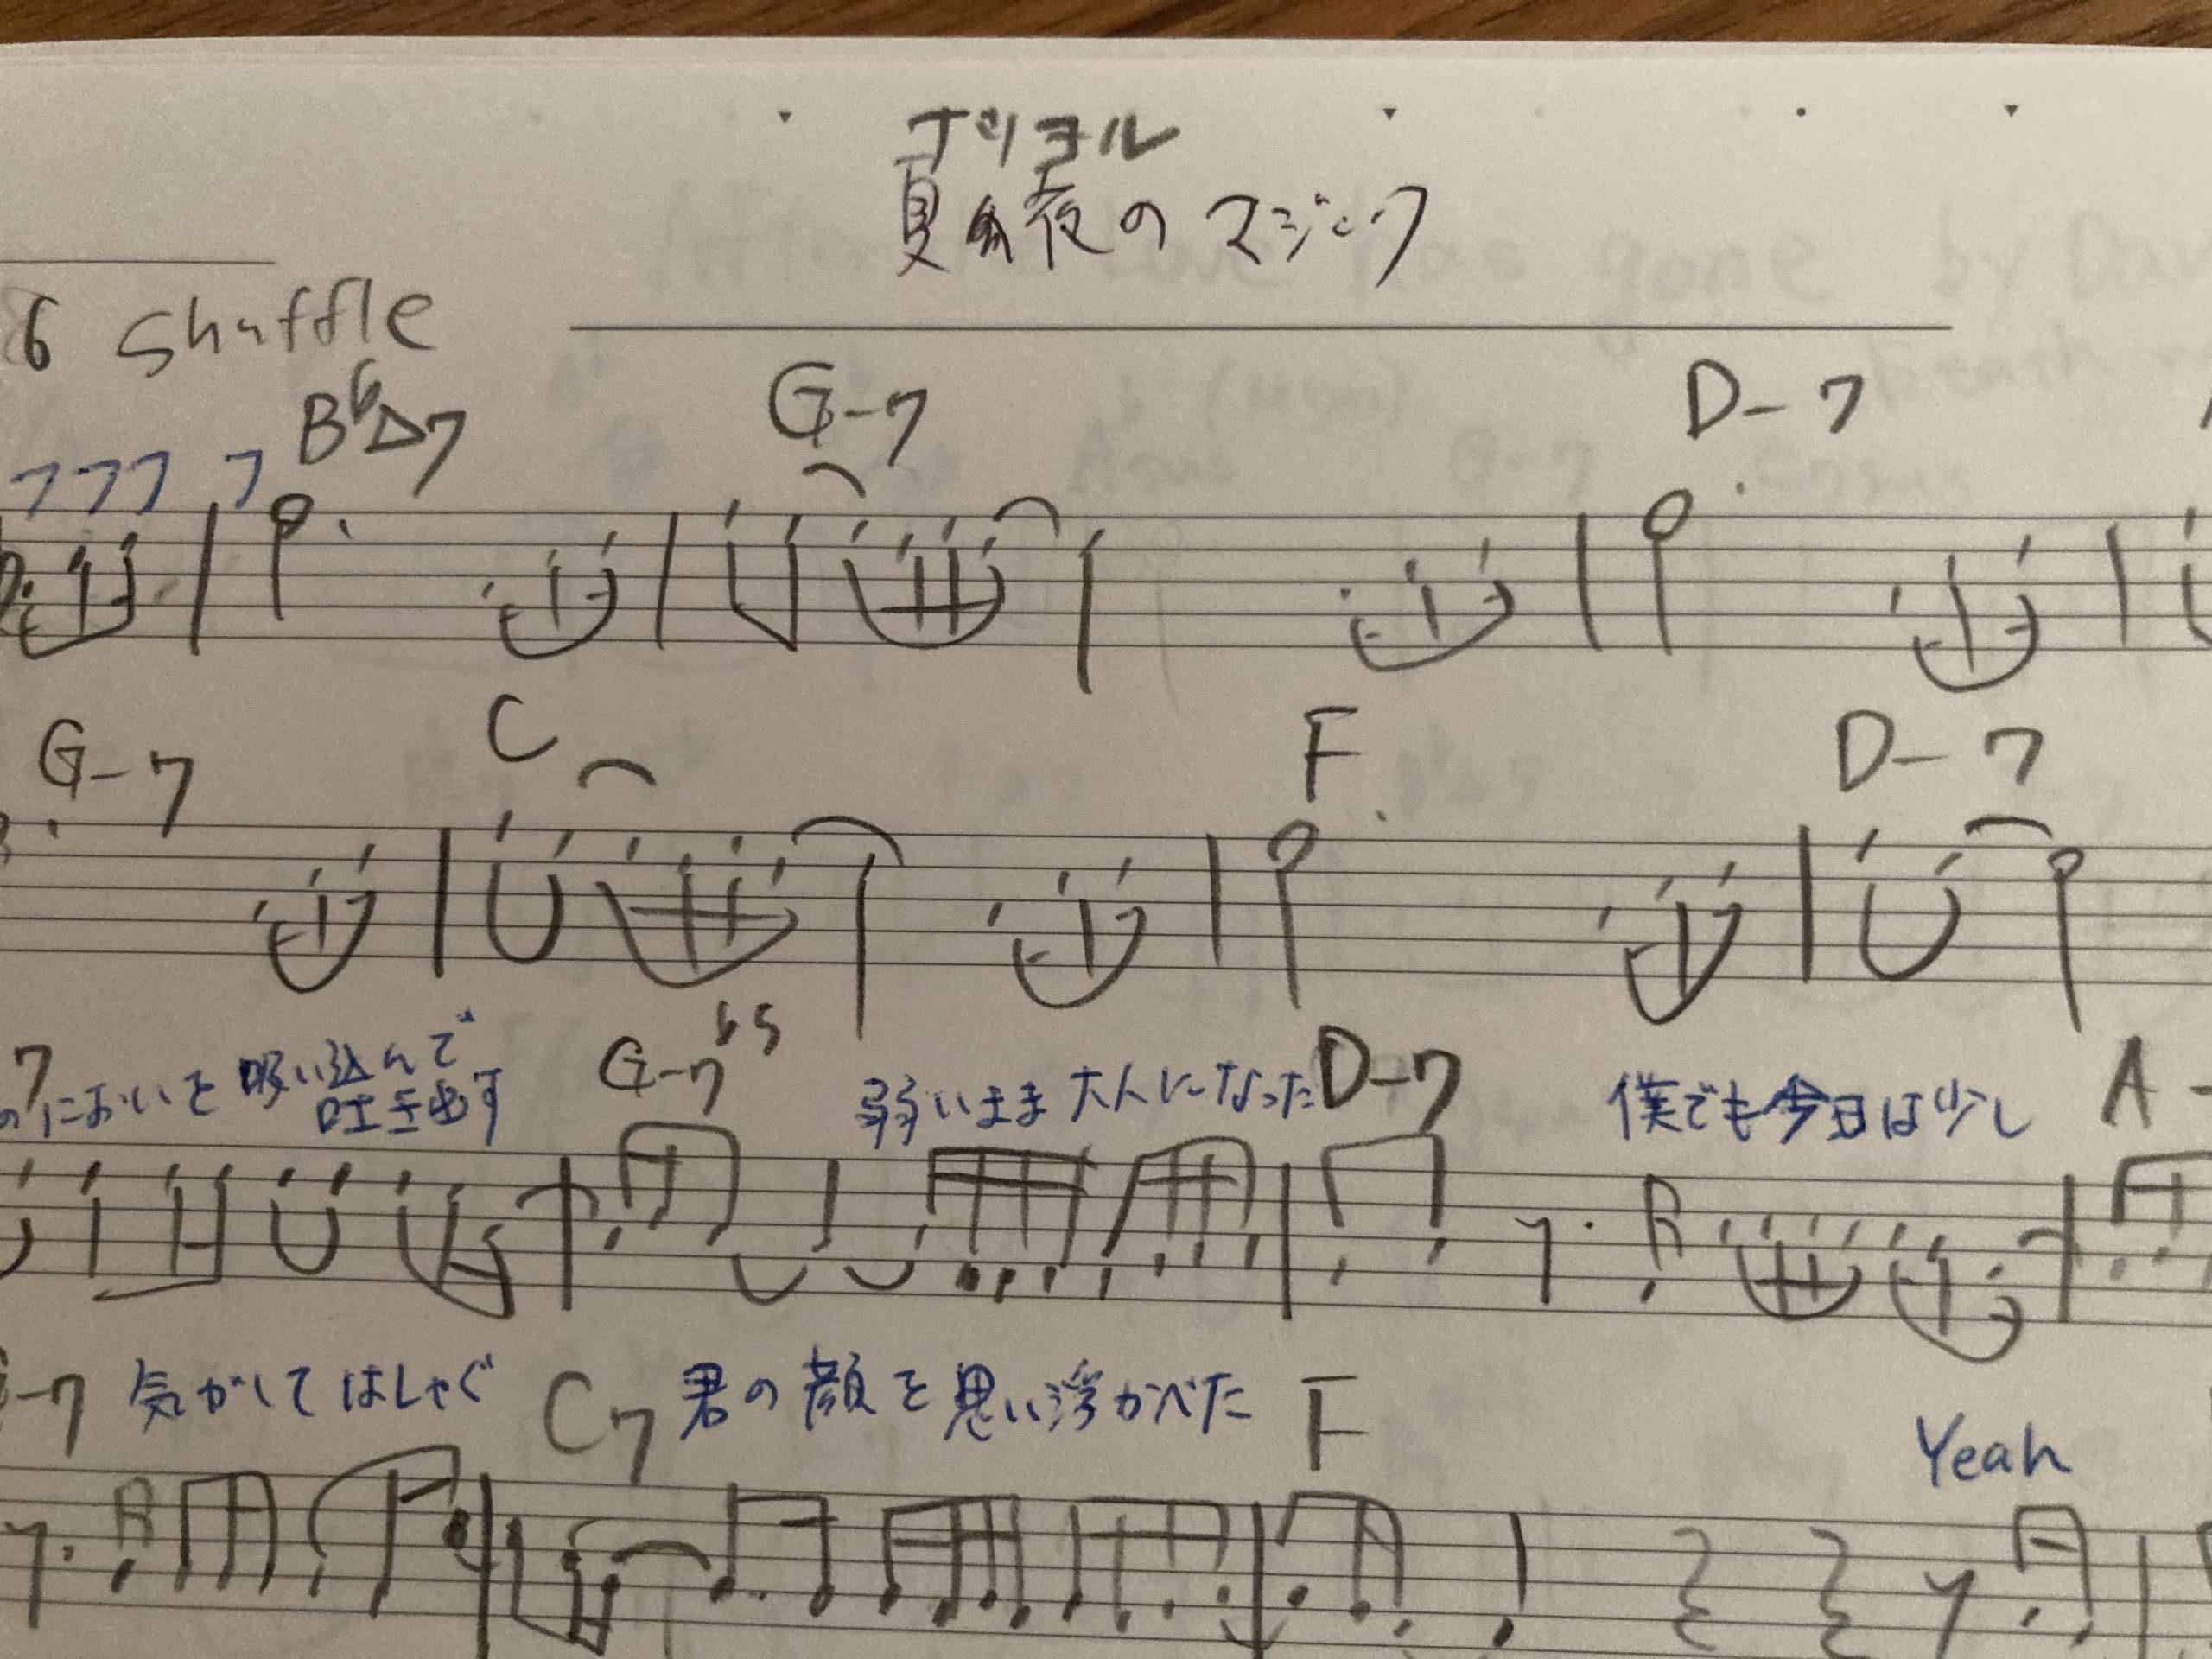 ナツヨル
夏夜のマジック
6 Shuffle
B♭△7 G-7 D-7
777 7
G-7 C F D-7
7 G-7♭5 D-7 A-
のにおいを吸い込んで 弱いまま大人になった 僕でも今日は少し
吐き出す
-7 気がしてはしゃぐ C7 君の顔を思い浮かべた F
Yeah